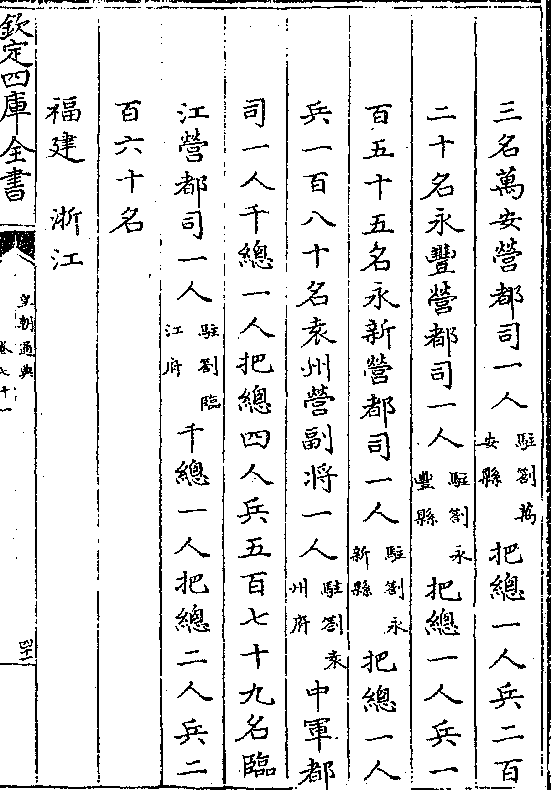 三名萬安營都司一人駐劄萬安縣把總一人兵二百
二十名永豐營都司一人駐劄永豐縣把總一人兵一
百五十五名永新營都司一人駐劄永新縣把總一人
兵一百八十名袁州營副將一人駐劄袁州府中軍都
司一人千總一人把總四人兵五百七十九名臨
江營都司一人駐劄臨江府千總一人把總二人兵二
百六十名
福建 浙江
欽定四庫全書
皇朝通典
卷七十一